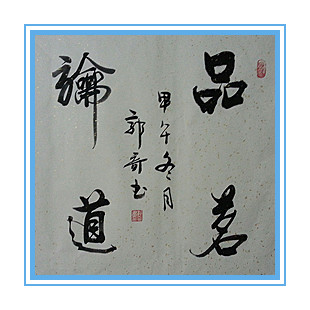 品茗
論道
甲午冬月
郭奇书